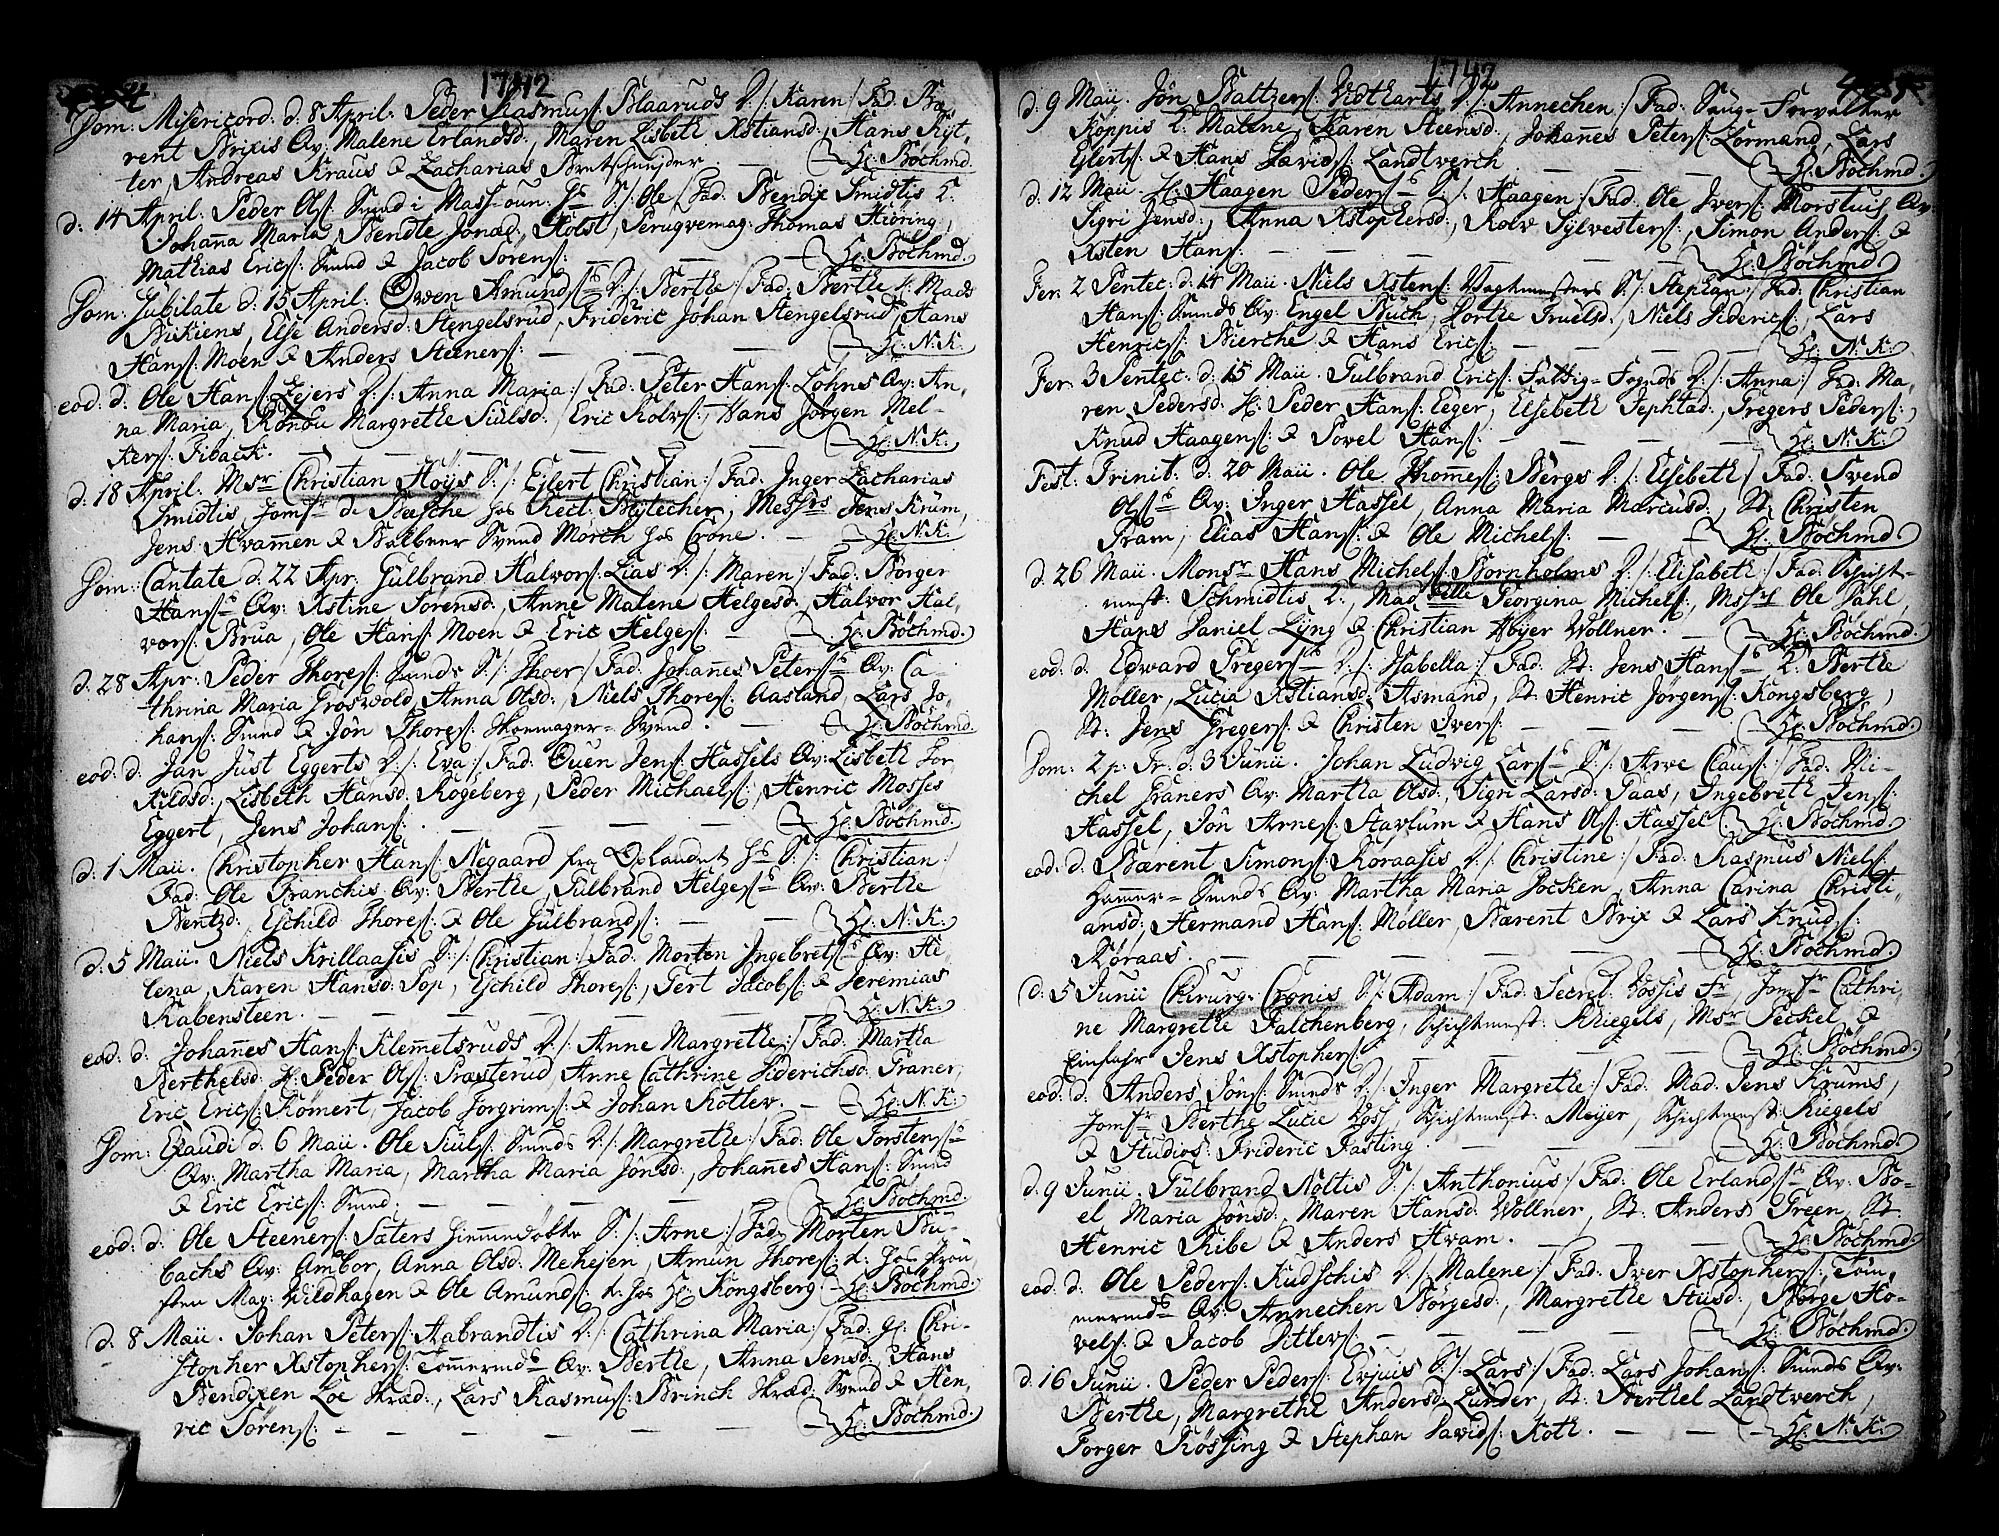 1742
Dom: Misericord: d. 8 April: Peder Rasmus∫: Blaaruds D:/: Karen /: Fad: Bæ
rent Brixis Qv: Malene Erlandsd:, Maren Lisbeth Xstiansd:, Hans Ryt
ter, Andreas Kraus & Zacharias Bretschneider. — H: Bochmd.
d: 14 April: Peder Ols∫: Svend i Mass-oun: Hs S:/: Ole /: Fad: Bendix Smidtis K:
Johanna Maria, Bendte Jonæd:, Holst, Perugvemag: Thomas Hiøring,
Mathias Erics∫: Svend & Jacob Sørens∫: — H: Bochmd.
Dom: Jubilate d: 15 April: Owen Amunds∫: D:/: Berthe /: Fad: Berthe k: Mads
Else Andersd: Stengelsrud, Frideric Johan Stengelsrud, Hans
Hans∫: Moen & Anders Steeners∫: — — — H: N. K:
eod: d: Ole Hans∫: Zejers D:/: Anna Maria /: Fad: Peter Hans∫: Lohnes Qv: An,
na Maria, Margrethe Siulsd:, Eric Rolvs∫:, Hans Jørgen Mel-
kers∫: Fiback. — — — — H: N. K:
d: 18 April: Msr Christian Hoÿs S:/: Ejlert Christian /: Fad: Inger Zacharias
Smidtis, Jomfr de Besche hos Rect: Blytecher, Messrs Jens Krum,
Jens Hvammen & Balbeer Svend Morch hos Crone. — H: N. K:
Dom: Cantate d: 22 Apr: Gulbrand Halvors∫: Lias D:/: Maren /: Fad: Børger
Hans∫: Qv: Xstine Sørensd:, Anne Malene Helgesd:, Halvor Hal,
vors∫: Brua, Ole Hans∫: Moen & Eric Helges∫: — H: Bochmd.
d: 28 Apr: Peder Thores∫: Svends S:/: Thoer /: Fad: Johannes Peters∫: Qv: Ca-
thrina Maria Groswold, Anna Olsd:, Niels Thores∫: Aasland, Lars Jo,
hans∫: Svend & Jøn Thores∫: Skoemager-Svend. — H: Bochmd.
eod: d: Jan Just Eggerts D:/: Eva /: Fad: Ouen Jens∫: Hassels Qv: Lisbeth Tor
kildsd:, Lisbeth Hansd: Rogeberg, Peder Michaels∫:, Henric Mosses
Eggert, Jens Johans∫: — — — H: Bochmd.
d: 1 Maii. Christopher Hans∫: Negaard fra Oplandet Hs S:/: Christian /:
Fad: Ole Franchis Qv: Berthe, Gulbrand Helges∫: Qv: Berthe
Bentzd: Eschild Thores∫: & Ole Gulbrands∫: — H: N. K:
d: 5 Maii. Niels Krillaasis S:/: Christian /: Fad: Morten Ingebrets∫: Qv: He,
lena, Karen Hansd: Top, Eschild Thores∫:, Gert Jacobs∫: & Jeremias
Rabensteen. — — — — H: N. K:
eod: d: Johannes Hans∫: Klemmetsruds D:/: Anne Margrethe /: Fad: Martha
Berthelsd: H: Peder Ols∫: Præsterud, Anne Cathrine Diderichsd: Graner,
Eric Erics∫: Rømert, Jacob Jorgrims∫: & Johan Kotler. — H: N. K:
Dom: Exaudi d: 6 Maii. Ole Siuls∫: Svends D:/: Margrethe /: Fad: Ole Torstens∫:
Qv: Martha Maria, Martha Maria Jonsd:, Johannes Hans∫: Svend
& Eric Erics∫: Svend. — — — H: Bochmd.
eod: d: Ole Steeners∫: Sæters S:/: Arne /: Fad: Morten Bu-
bachs Qv: Ambor, Anna Olsd: Mehejen, Amun Thores∫: k: hos
Mag: Wildhagen & Ole Amunds∫: k: hos H: Kongsberg. — H: Bochmd.
d: 8 Maii. Johan Peters∫: Aabrandtis D:/: Cathrina Maria /: Fad: Chri-
stopher Xstophers∫: Tømmermds Qv: Berthe, Anna Jensd:, Hans
Bendixen Loe Skræd:, Lars Rasmus∫: Brinch Skræd: Svend & Hen,
ric Sørens∫: — — — — H: Bochmd.
1742
d: 9 Maii. Jøn Baltzers∫: Vidtharts D:/: Annechen /: Fad: Saug-Forvalter
Køppis K: Malene, Karen Steensd:, Johannes Peters∫: Lormand, Lars
Ejlerts∫: & Hans Davids∫: Landtverch — H: Bochmd.
d: 12 Maii. H: Haagen Peders∫: S:/: Haagen /: Fad: Ole Ivers∫: Morstuis Qv:
Sigri Jensd:, Anna Xstophersd:, Rolv Sylvesters∫:, Simon Anders∫: &
Xsten Hans∫: — — — H: Bochmd.
Fer: 2 Pentec: d: 14 Maii. Niels Xstens∫: Vagtmesters S:/: Stephan /: Fad: Christian
Hans∫: Svends Qv: Engel Buch, Dorthe Truelsd:, Niels Diderics∫:, Lars
Henrics∫: Bierche & Hans Erics∫: — — — H: N. K:
Fer: 3 Pentec: d: 15 Maii. Gulbrand Erics∫: Fattig-Fogeds D:/: Anna /: Fad: Ma,
ren Pedersd: H: Peder Hans∫: Eger, Elsebeth Jephtad:, Gregers Peders∫:,
Knud Haagens∫: & Povel Hans∫: — — H: N. K:
Fest: Trinit: d: 20 Maii. Ole Thomes∫: Bergs D:/: Elsebeth /: Fad: Svend
Ols∫: Qv: Inger Hassel, Anna Maria Marcusd:, St: Christen
Pram, Elias Hans∫: & Ole Michels∫: — H: Bochmd.
d: 26 Maii. Monsr Hans Michels∫: Bornholms D:/: Elisabeth /: Fad: Schicht-
mest: Schmidtis K:, Madselle Georgina Michels∫:, Mssrs Ole Dahl,
Hans Daniel Lÿng & Christian Høÿer Wollner. — H: Bochmd.
eod: d: Edward Gregers∫: D:/: Isabella /: Fad: St: Jens Hans∫: K: Berthe
Møller, Lucia Xstiansd: Asmand, St: Henric Jørgens∫: Kongsberg,
St: Jens Gregers∫: & Christen Ivers∫: — H: Bochmd.
Dom: 2 p: Tr: d: 3 Junii. Johan Ludvig Lars∫: S:/: Arve Claus∫: /: Fad: Mi-
chel Graners Qv: Martha Olsd:, Sigri Larsd: Saas, Ingebreth Jens∫:
Hassel, Jøn Arnes∫: Stavlum & Hans Ols∫: Hassel H: Bochmd.
eod: d: Bærent Simons∫: Koraasis D:/: Christine /: Fad: Rasmus Niels∫:
Hammer-Svends Qv: Martha Maria Jocken, Anna Carina Christi,
ansd:, Hermand Hans∫: Møller, Bærent Brix & Lars Knuds∫:
Køraas. — — — — H: Bochmd.
d: 5 Junii Chirurg: Cronis S:/: Adam /: Fad: Secret: Vossis Fr, Jomfr Cathri,
ne Margrethe Falchenberg, Schichtmest: Kriegels, Msr Peckel &
Einfahr Jens Xstophers∫: — — — H: Bochmd.
eod: d: Anders Jøns∫: Svends D:/: Inger Margrethe /: Fad: Mad: Jens Krums,
Jomfr Berthe Lucie Vos, Schichtmest: Meÿer, Schichtmest: Riegels
& Studios: Frideric Fasting — — H: Bochmd.
d: 9 Junii. Gulbrand Noltis S:/: Anthonius /: Fad: Ole Erlands∫: Qv: Bo-
el, Maria Jonsd:, Maren Hansd: Wollner, St: Anders Green, St:
Henric Ribe & Anders Hvam. — H: Bochmd.
eod: d: Ole Peders∫: Kudschis D:/: Malene /: Fad: Iver Xstophers∫:, Tøm,
mermds Qv: Annechen Børgesd:, Margrethe Siusd:, Børge Ho-
vels∫: & Jacob Ditlevs∫: — — — H: Bochmd.
d: 16 Junii. Peder Peders∫: Evjuis S:/: Lars /: Fad: Lars Johans∫: Svends Qv:
Berthe, Margrethe Andersd: Lunder, St: Berthel Landtverch,
Torger Røssing & Stephan Davids∫: Koth. — — H: N. K: